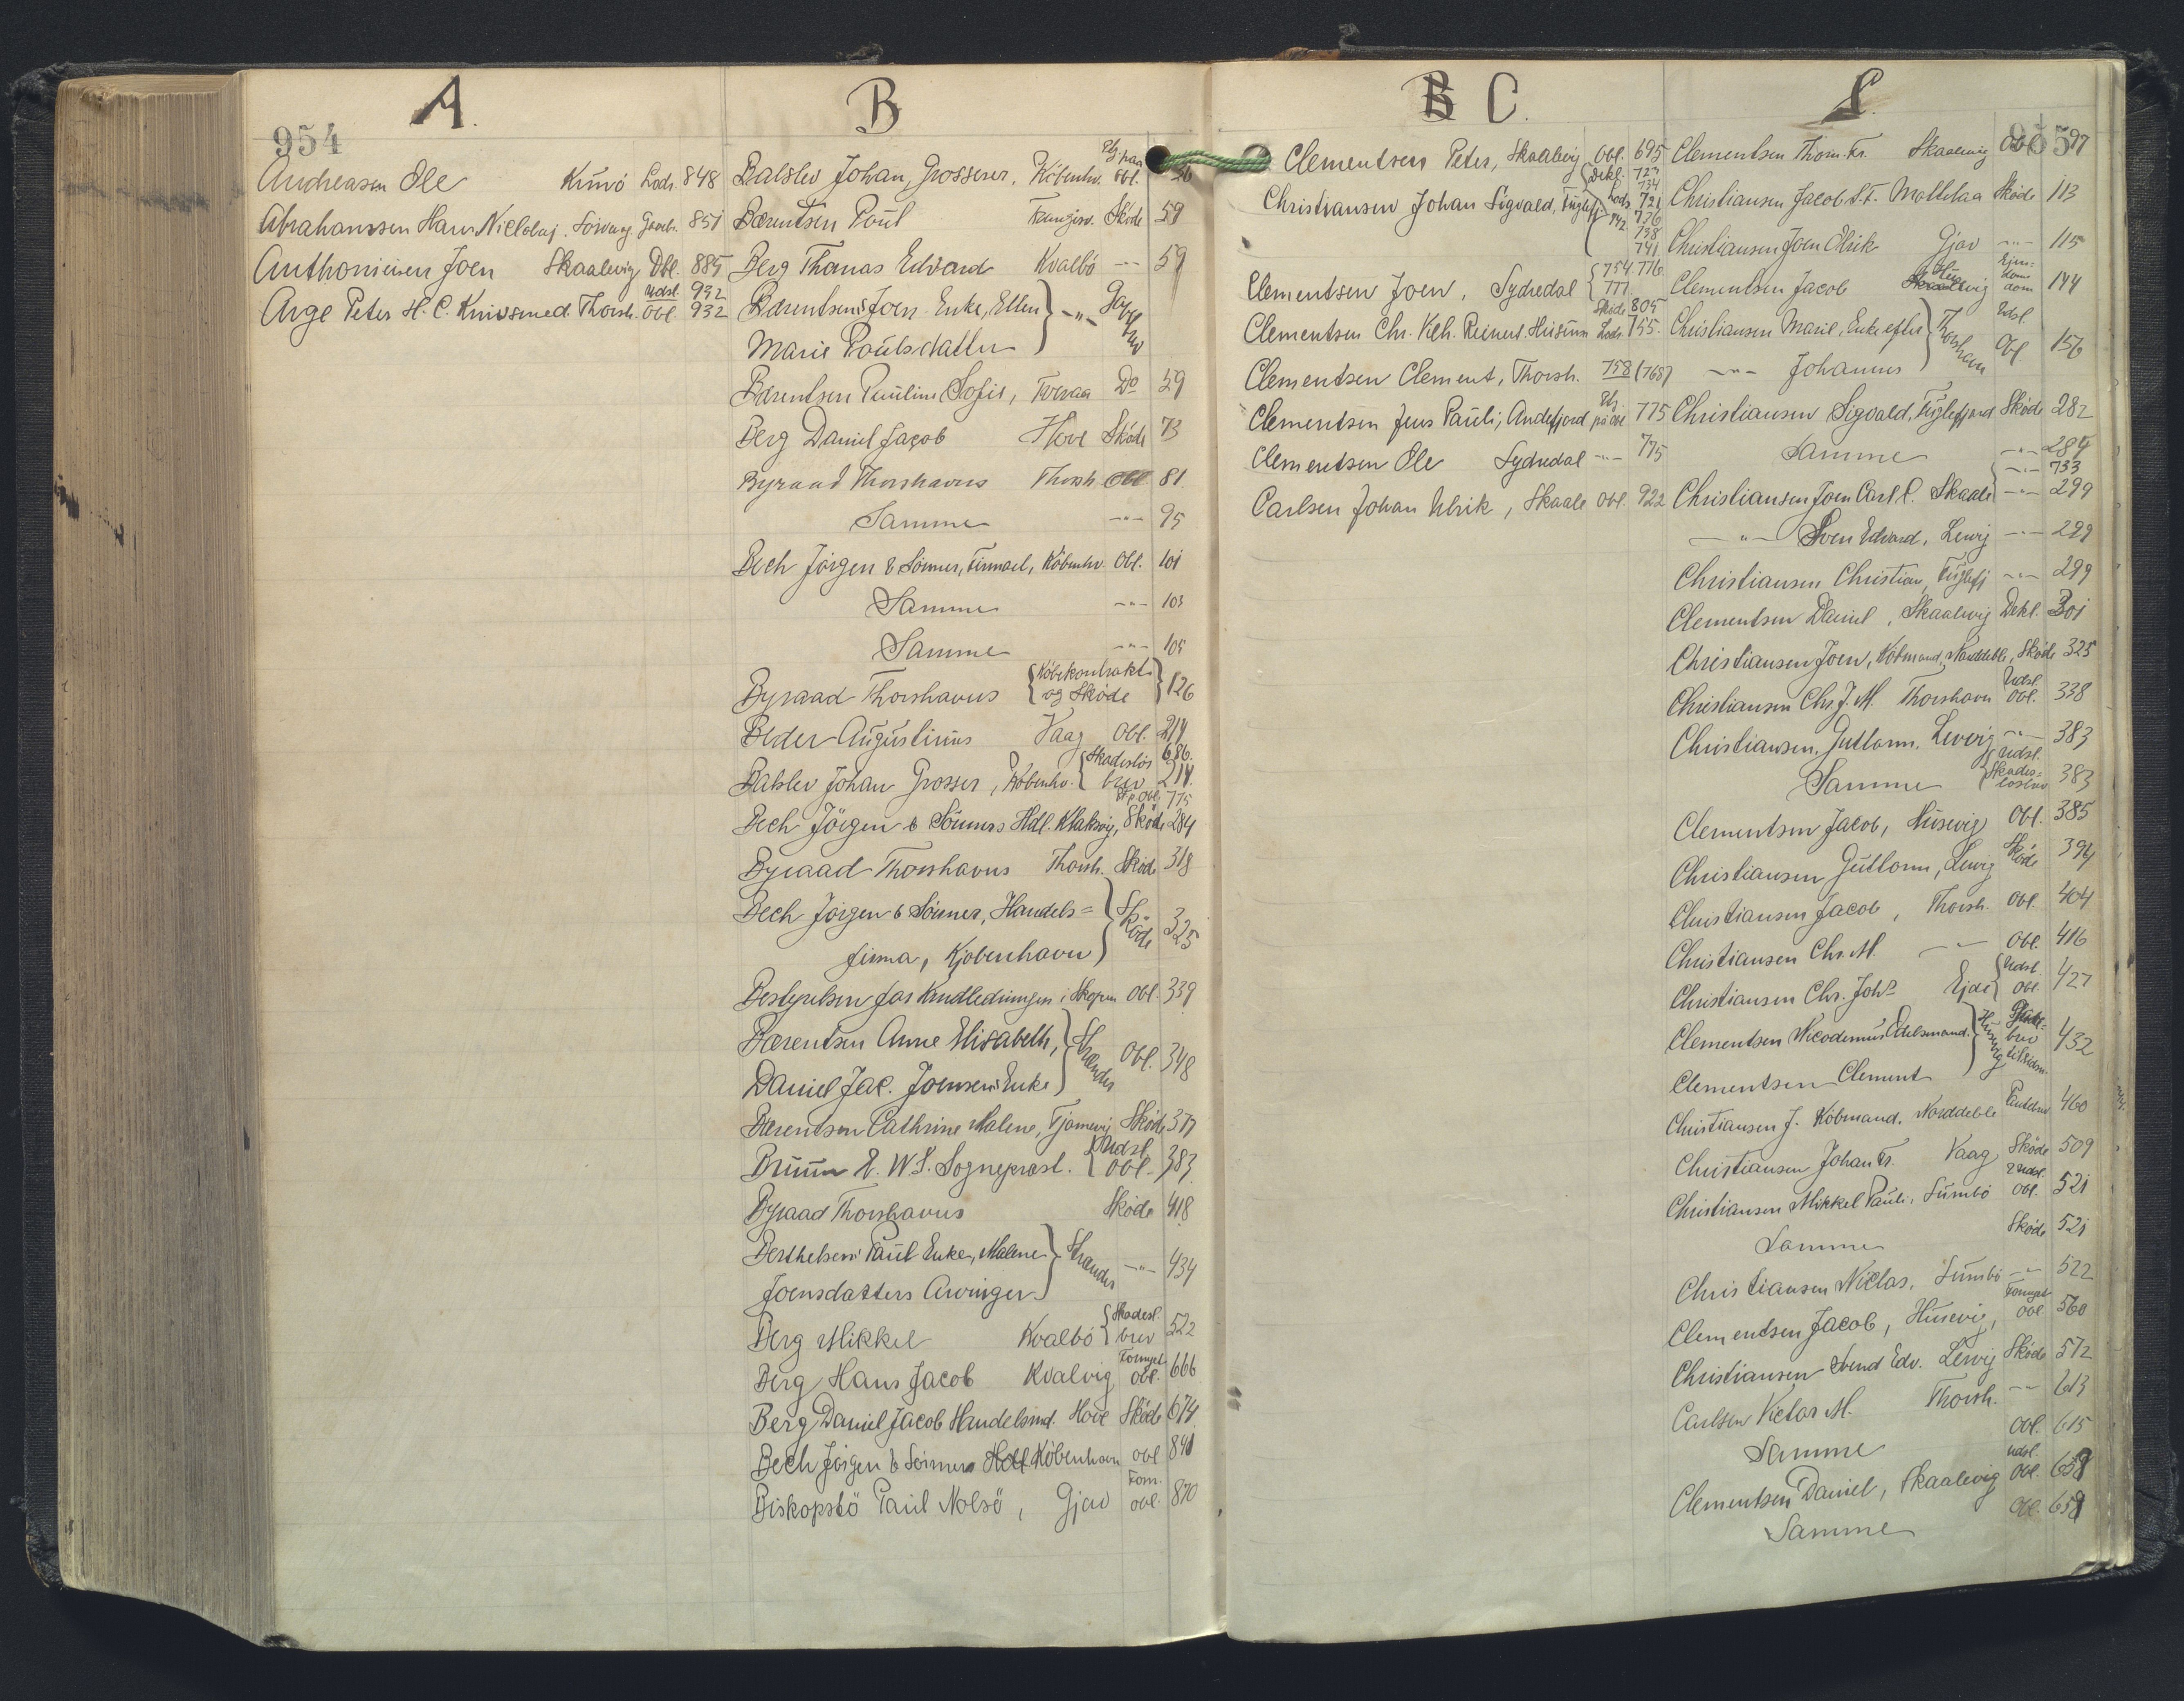 954
A.
Andreasen Ole Kunö Lods. 848
Abrahamsen Hans Nicklohaj. Sörvaag Gavebr. 851
Anthoniesen Joen Skaalevig Obl. 885
Udsl. 932
Arge Peter H. C. Knivsmed. Thorsh. Obl. 932
B
Balslev Johan, Grosserer. Köbenhv. Obl. 26
Bærentsen Poul Skøde 59
Berg Thomas Edvard Kvalbö -"- 59
Bærentsens Joen Enke, Ellen -"- Gavebrev
Marie Poulsdatter
Bærentsen Pauline Sofie, Tveraa Do 59
Berg Daniel Jacob Hove Sköde 73
Byraad Thorshavns Thorsh Obl 81
Samme -"- 95
Bech Jörgen & Sönner, Firmaet, Köbenhv. Obl. 101
Samme -"- 103
Samme -"- 105
Byraad Thorshavns Köbekontrakt og Sköde 126
Beder Augustinus Vaag Obl. 214
686.
Balslev Johan Grosser, Köbenhv. Skadeslös brev 214.
Obl. 775
Bech Jörgen & Sönners Hdl. Klaksvig, Sköde 284
Byraad Thorshavns Thorsh. Sköde 318
Bech Jörgen & Sönner, Handels= Sköde 325
firma, Kjøbenhavn
Bestyrelsen for Kredledningen i Skopen Obl. 339
Bærentsen Anne Elisabeth, Strender Obl. 348
Daniel Jac. Joensens Enke
Bærentsen Cathrine Malene, Fjamevig Sköde 377
Bruun E. W. S. Sogneprest. Udsl. Obl. 383
Byraad Thorshavns Sköde 418
Berthelsens Paul Enke, Malene Strender -"- 434
Joensdatters Arvinger
Berg Mikkel Kvalbö Skadesl. brev 522
Berg Hans Jacob Kvalvig Fornyet obl. 666
Berg Daniel Jacob Handelsmd. Hove Sköde 674
Bech Jörgen & Sönners Hdl København obl 841
Biskopstö Paul Nolsö, Gjov Forn. obl. 870
B C.
Clementsen Peter, Skaalevig Obl. 695
Dekl. 727
734
Christiansen Johan Sigvald, Fuglefj Lods 721
742 736
738
741
754. 776.
Clementsen Joen, Sydredal 777.
Sköde 805
Clementsen Chr. Vilh. Reinert. Husum Lods. 755.
Clementsen Clement, Thorsh. 758 (768)
Clementsen Jens Pauli, Andefjord på Obl 775
Clementsen Ole Sydredal -"- 775
Carlsen Johan Ulrik, Skaale Obl. 922
C.
955
Clementsen Thom. Fr. Skaalevig Obl 97
Christiansen Jacob S. F. Mollelaa Sköde 113
Christiansen Joen Olrik Gjov -"- 115
Clementsen Jacob Husevig Ejendom 144
Christiansen Marie, Enke efter Thorshavn Udsl. Obl. 156
-"- Johannes
Christiansen Sigvald, Fuglefjord Sköde 282
Samme -"- 284
-"- 733
Christiansen Joen Carl C. Skaale -"- 299
-"- Sven Edvard, Lervig -"- 299
Christiansen Christian, Fuglefj -"- 299
Clementsen Daniel, Skaalevig Dekl. 301
Christiansen Joen, Köbmand, Norddeble, Sköde 325
Christiansen Chr. J. M. Thorshavn Udsl. obl. 338
Christiansen. Guttorm. Lervig -"- 383
Samme Udsl. Skadeslösbrev 383
Clementsen Jacob, Husevig Obl. 385
Christiansen Guttorm, Lervig Sköde 394
Christiansen Jacob, Thorsh. Obl. 404
Christiansen Chr. M. -"- Obl. 416
Christiansen Chr. Johs Ejde Udsl. Obl 427
Clementsen Nicodemus Odelsmand. Husevig 432
Clementsen Clement
Christiansen J. Köbmand. Norddeble 460
Christiansen Johan Fr. Vaag Sköde 509
Christiansen Mikkel Pauli. Sumbö 2 Udsl. Obl. 521
Samme Sköde 521
Christiansen Niclas, Sumbö -"- 522
Clementsen Jacob, Husevig, Fornyet obl. 560
Christiansen Svend Edv. Lervig Sköde 572
Carlsen Victor M. Thorsh. -"- 613
Samme Obl. 615
Clementsen Daniel, Skaalevig Udsl. Obl. 659
Samme Obl. 659